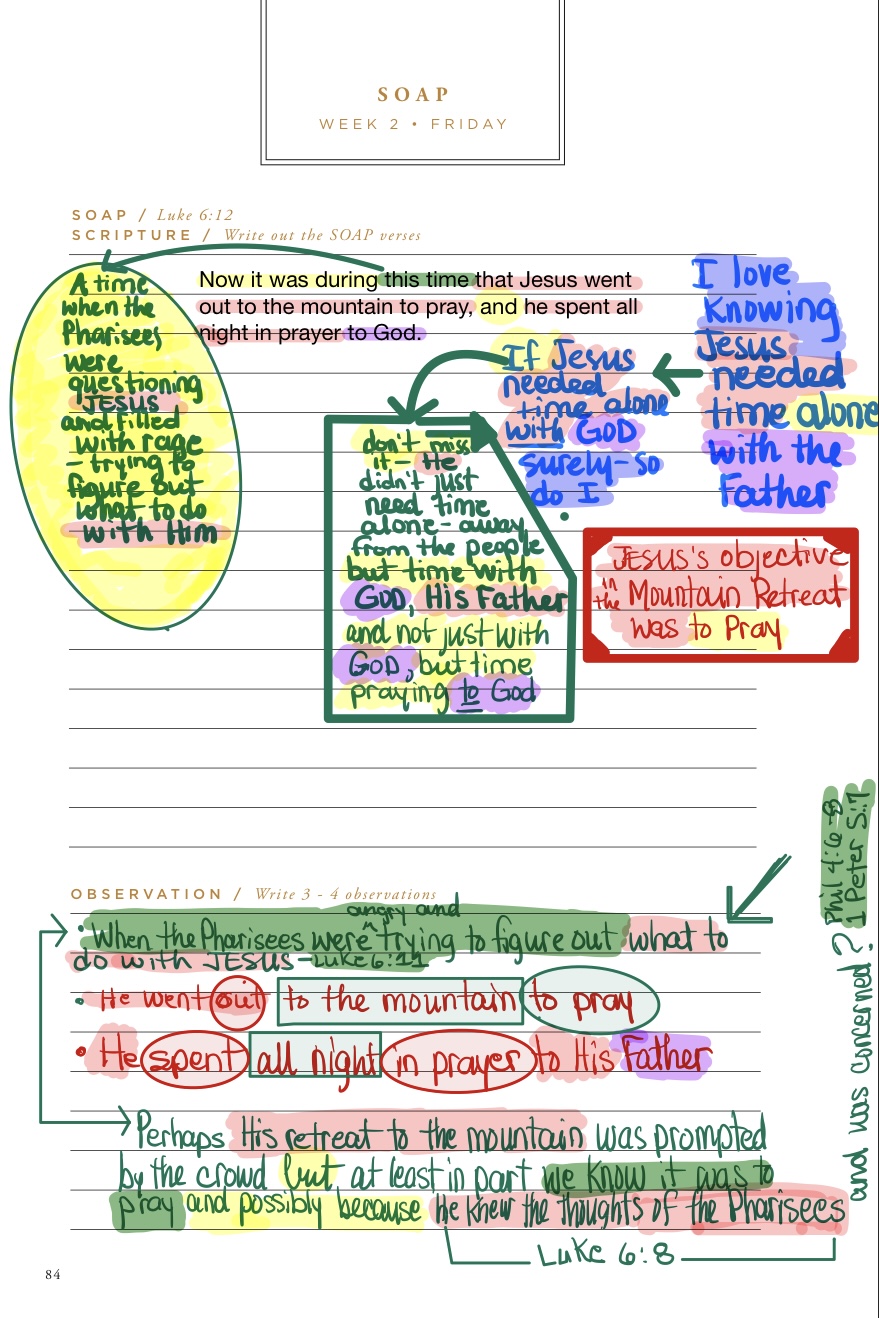 SOAP
WEEK 2 • FRIDAY
SOAP / Luke 6:12
SCRIPTURE / Write out the SOAP verses
Now it was during this time that Jesus went
out to the mountain to pray, and he spent all
night in prayer to God.
A time
when the
Pharisees
were
questioning
JESUS
and filled
with rage
- trying to
figure out
what to do
with Him
I love
knowing
Jesus
needed
time alone
with the
Father
If Jesus
needed
time alone
with GOD
surely - so
do I
don't miss
it - He
didn't just
need time
alone - away
from the people
but time with
GOD, His Father
and not just with
GOD, but time
praying to God
JESUS's objective
in the Mountain Retreat
was to Pray
OBSERVATION / Write 3 - 4 observations
• When the Pharisees were angry and trying to figure out what to
do with JESUS - Luke 6:11
• He went out to the mountain to pray
• He spent all night in prayer to His Father
Perhaps His retreat to the mountain was prompted
by the crowd but at least in part we know it was to
pray and possibly because he knew the thoughts of the Pharisees
and was concerned?
Phil 4:6-8
1 Peter 5:7
Luke 6:8
84